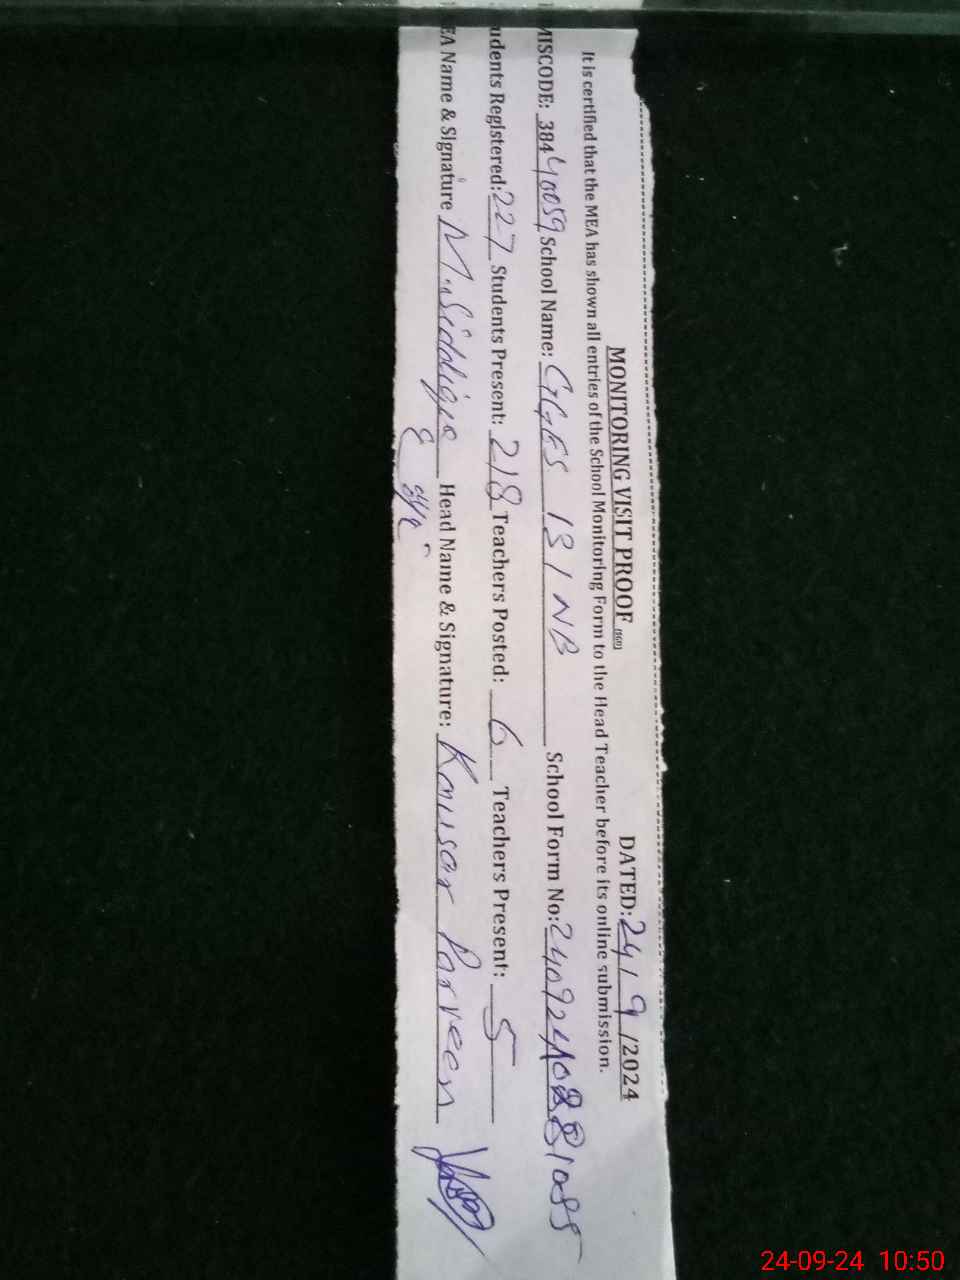 MONITORING VISIT PROOF (SGD) DATED: 24/9/2024
It is certified that the MEA has shown all entries of the School Monitoring Form to the Head Teacher before its online submission.
MISCODE: 38440059 School Name: GGES 131 NB School Form No:
udents Registered: 227 Students Present: 218 Teachers Posted: 6 Teachers Present: 5
EA Name & Signature Head Name & Signature: Kausar Parveen
24-09-24 10:50